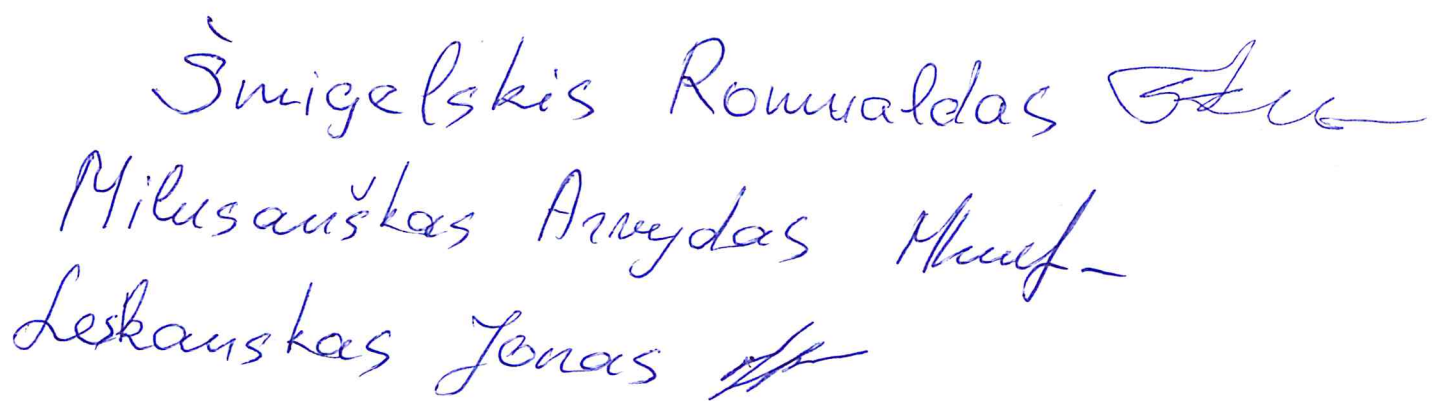 Šmigelskis Romualdas
Milusauškas Arvydas
Leskauskas Jonas